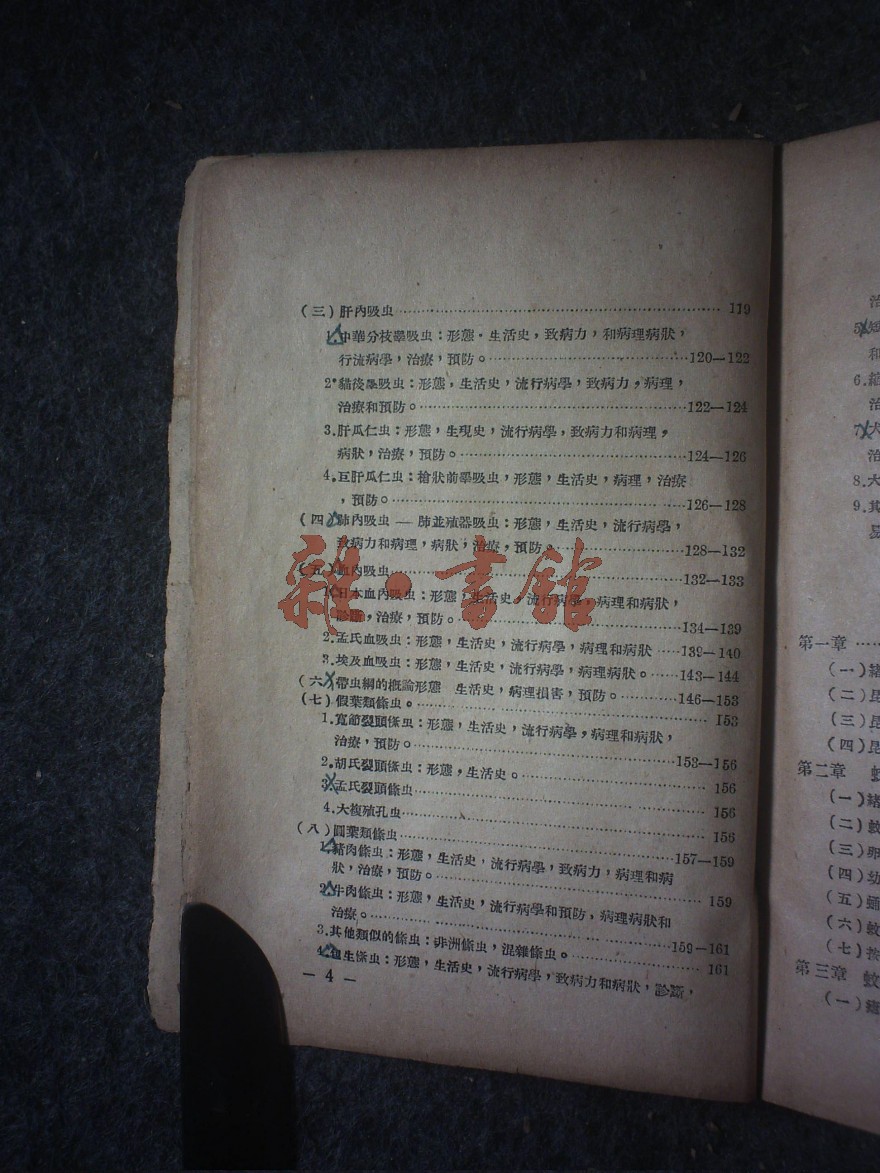 (三)肝內吸虫 119
1.中華分枝睪吸虫:形態·生活史,致病力,和病理病狀,
行流病學,治療,預防。 120—122
2.貓後睪吸虫:形態,生活史,流行病學,致病力,病理,
治療和預防。 122—124
3.肝瓜仁虫:形態,生現史,流行病學,致病力和病理,
病狀,治療,預防。 124—126
4.巨肝瓜仁虫:槍狀前睪吸虫,形態,生活史,病理,治療
,預防。 126—128
(四)肺內吸虫 — 肺並殖器吸虫:形態,生活史,流行病學,
致病力和病理,病狀,治療,預防。 128—132
(五)血內吸虫 132—133
1.日本血內吸虫:形態,生活史,流行病學,病理和病狀,
診斷,治療,預防。 134—139
2.孟氏血吸虫:形態,生活史,流行病學,病理和病狀 139—140
3.埃及血吸虫:形態,生活史,流行病學,病理和病狀。 143—144
(六)帶虫綱的概論形態 生活史,病理損害,預防。 146—153
(七)假葉類條虫。 153
1.寬節裂頭條虫:形態,生活史,流行病學,病理和病狀,
治療,預防。 153—156
2.胡氏裂頭條虫:形態,生活史。 156
3.孟氏裂頭條虫 156
4.大複殖孔虫 156
(八)圓葉類條虫 157—159
1.豬肉條虫:形態,生活史,流行病學,致病力,病理和病
狀,治療,預防。 159
2.牛肉條虫:形態,生活史,流行病學和預防,病理病狀和
治療。 159—161
3.其他類似的條虫:非洲條虫,混雜條虫。 161
4.包生條虫:形態,生活史,流行病學,致病力和病狀,診斷,
— 4 —
雜·書館
治
5.
和
6.
治
7.犬
治
8.大
9.其
第一章
(一)緒
(二)昆
(三)昆
(四)昆
第二章
(一)緒
(二)蚊
(三)卵
(四)幼
(五)蛹
(六)蚊
(七)
第三章 蚊
(一)